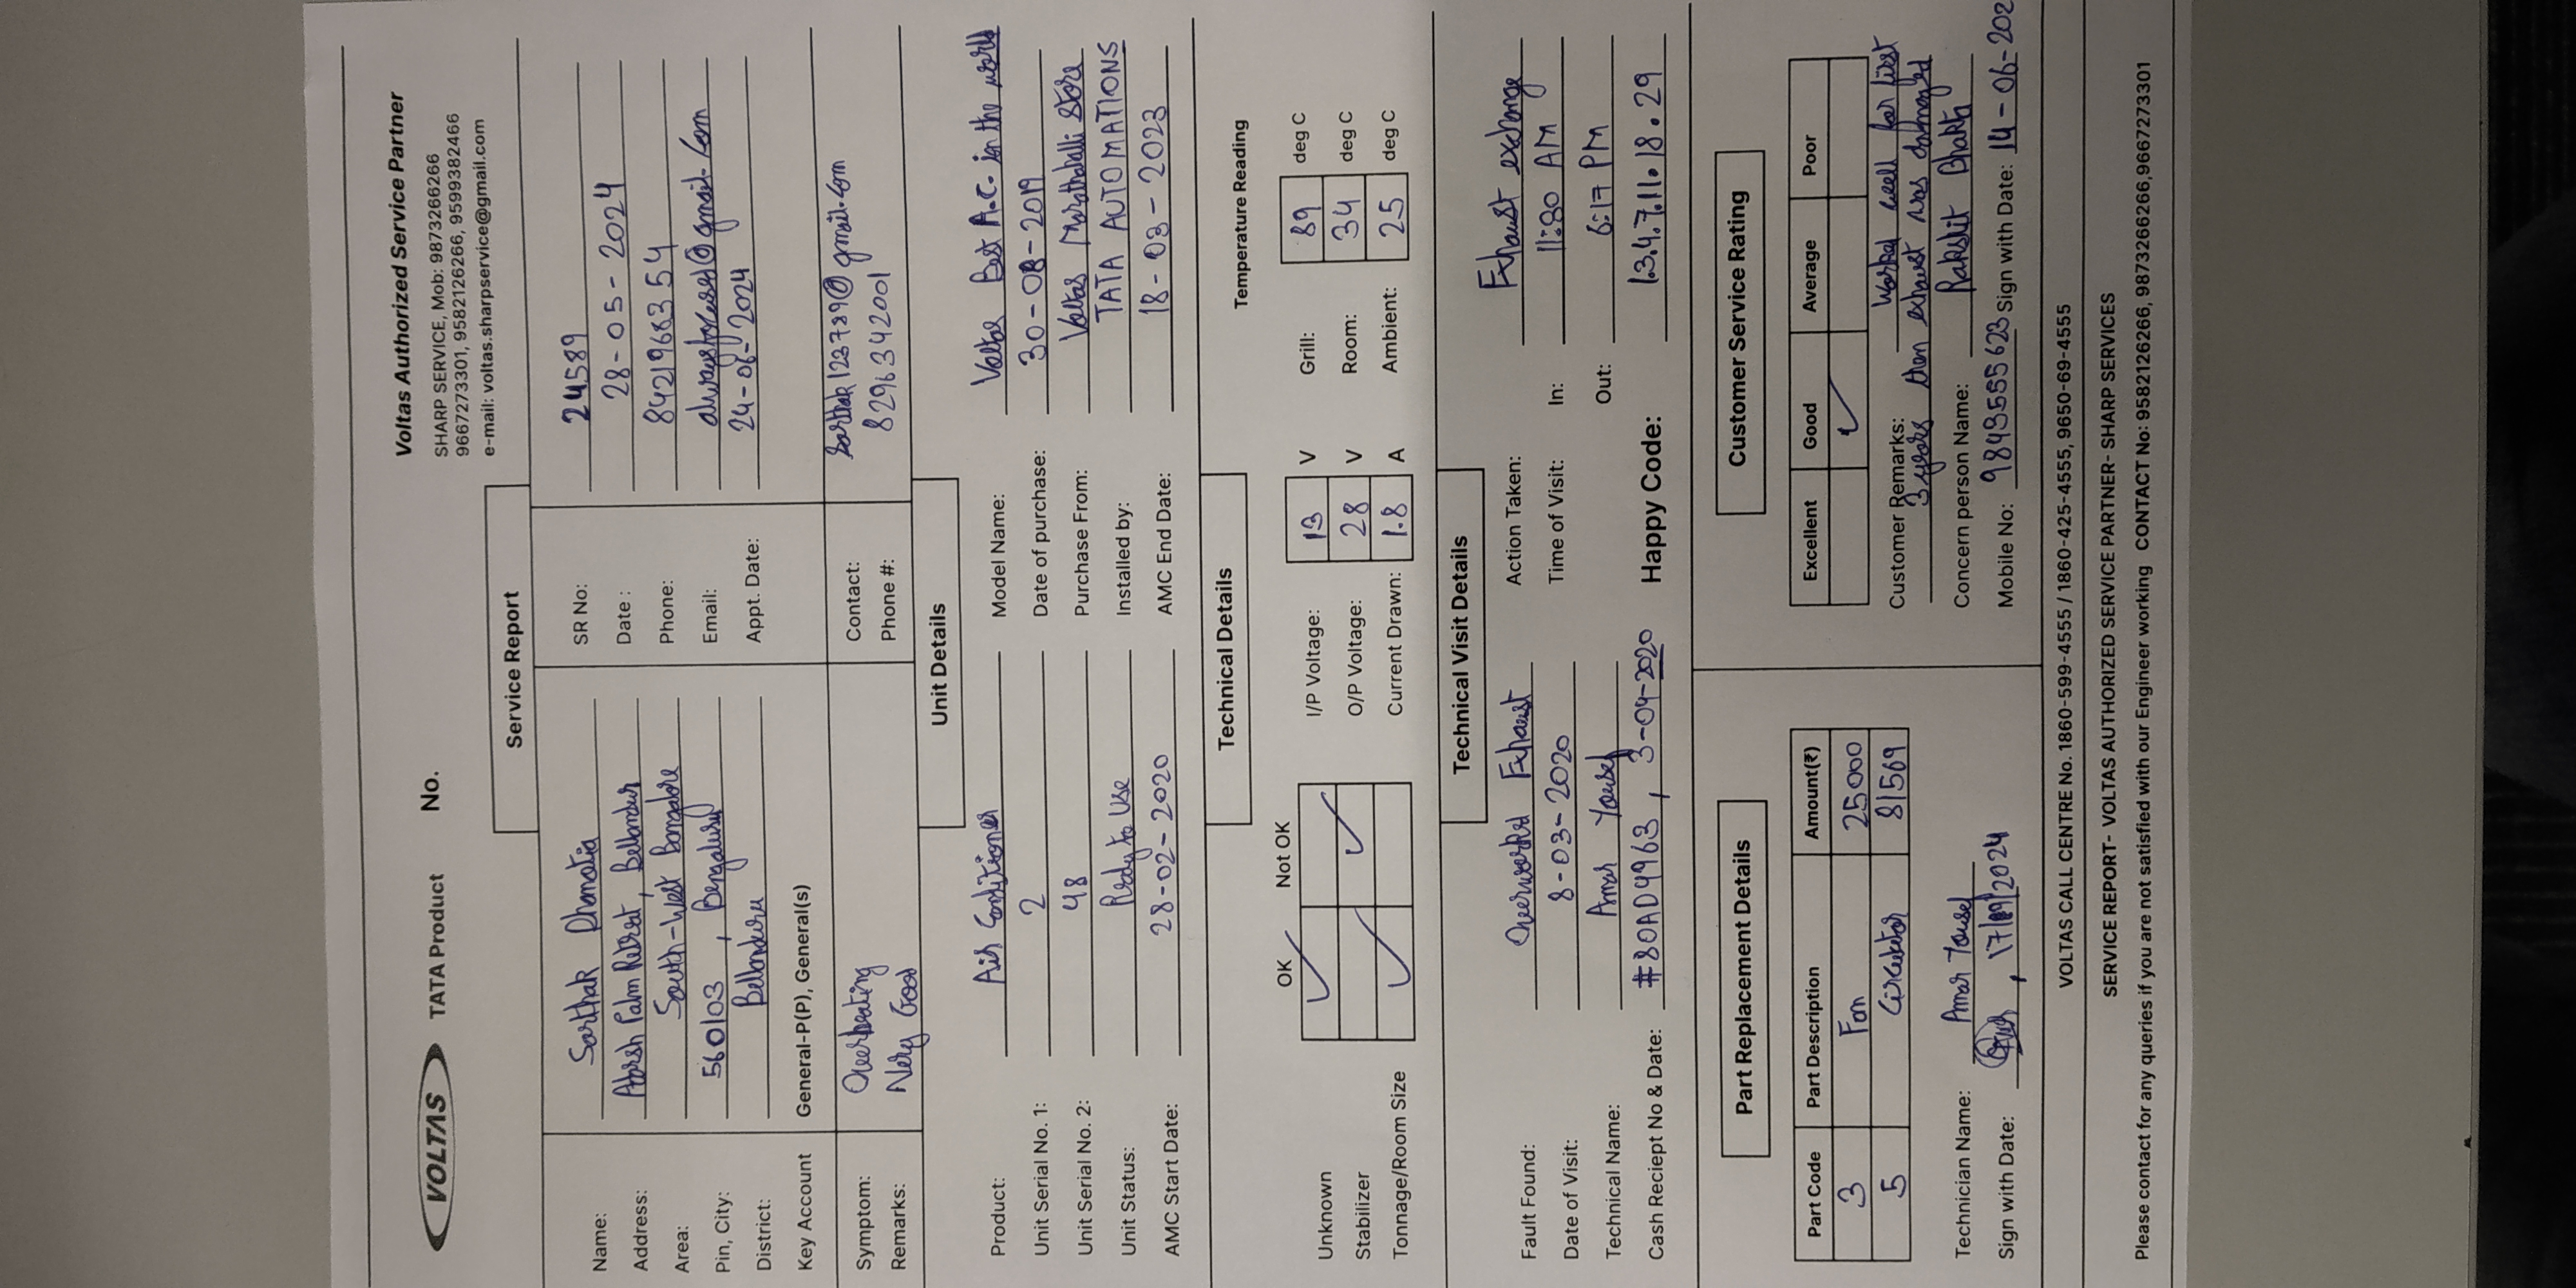 VOLTAS TATA Product No.
Voltas Authorized Service Partner
SHARP SERVICE, Mob: 9873266266
9667273301, 9582126266, 9599382466
e-mail: voltas.sharpservice@gmail.com
Service Report
Name: Sarthak Dhamatia
Address: Adarsh Palm Retreat, Bellandur
Area: South-West Bangalore
Pin, City: 560103, Bengaluru
District: Bellanduru
Key Account General-P(P), General(s)
SR No: 24589
Date: 28-05-2024
Phone: 8421968354
Email: @gmail.com
Appt. Date: 24-06-2024
Symptom: Overheating
Remarks: Very Good
Contact: Sarthak123789@gmail.com
Phone #: 8296342001
Unit Details
Product: Air Conditioner
Unit Serial No. 1: 2
Unit Serial No. 2: 48
Unit Status: Ready to Use
AMC Start Date: 28-02-2020
Model Name: Voltas Best A.C. in the world
Date of purchase: 30-08-2019
Purchase From: Voltas Marathahalli Store
Installed by: TATA AUTOMATIONS
AMC End Date: 18-03-2023
Technical Details
Temperature Reading
OK Not OK
Unknown ✓
Stabilizer ✓
Tonnage/Room Size ✓
I/P Voltage: 13 V
O/P Voltage: 28 V
Current Drawn: 1.8 A
Grill: 89 deg C
Room: 34 deg C
Ambient: 25 deg C
Technical Visit Details
Fault Found: Overworked Exhaust
Date of Visit: 8-03-2020
Technical Name: Amar Yousef
Cash Reciept No & Date: #80AD4963, 3-04-2020
Action Taken: Exhaust exchange
Time of Visit: In: 11:30 AM
Out: 6:17 PM
Happy Code: 1.3.4.7.11.18.29
Part Replacement Details
Part Code Part Description Amount(₹)
3 Fan 25000
5 Circulator 81569
Technician Name: Amar Yousef
Sign with Date: , 17/09/2024
Customer Service Rating
Excellent Good Average Poor
✓
Customer Remarks: Worked well for first
3 years then exhaust was damaged
Concern person Name: Rakshit Bhakta
Mobile No: 9843555623 Sign with Date: 14-06-202
VOLTAS CALL CENTRE No. 1860-599-4555 / 1860-425-4555, 9650-69-4555
SERVICE REPORT- VOLTAS AUTHORIZED SERVICE PARTNER- SHARP SERVICES
Please contact for any queries if you are not satisfied with our Engineer working CONTACT No: 9582126266, 9873266266,9667273301